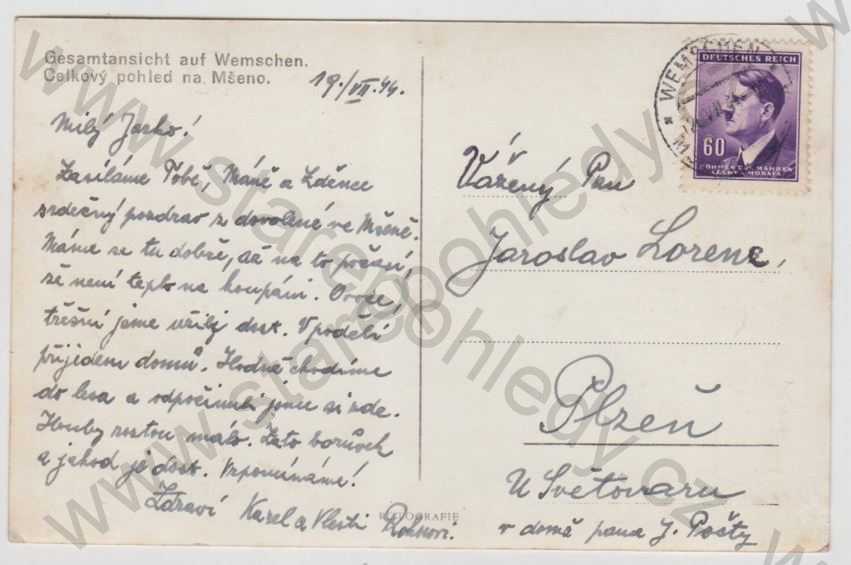 Gesamtansicht auf Wemschen.
Celkový pohled na Mšeno.
19./VII.44.
Milý Jarko!
Zasíláme Tobě, Máně a Zděnce
srdečný pozdrav z dovolené ve Mšeně.
Máme se tu dobře, až na to počasí,
že není teplo na koupání. Ovoce,
třešní jsme užili dost. V pondělí
přijedem domů. Hodně chodíme
do lesa a odpočinuli jsme si zde.
Houby rostou málo. Zato borůvek
a jahod je dost. Vzpomínáme!
Zdraví Karel a Vlasti
FOTOGRAFIE
WEMSCHEN
DEUTSCHES REICH
60
BÖHMEN U. MÄHREN
ČECHY A MORAVA
Vážený Pan
Jaroslav Lorenc,
Plzeň
U Světovaru
v domě pana J. Pošty
www.starepohledy.cz